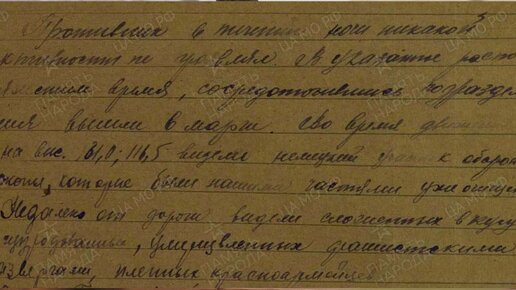 Противник в течении ночи никакой
активности не проявлял. В указанное распо
время, сосредоточившись подразде
ия вышли в марш. Во время движ
на выс. 131,0; 116,5 видели немецкий к оборон
которые были нашими частями уже очищен
Недалеко от дороги видели сложенных в кучу
умерщвленных фашистскими
извергами, пленных красноармейцев